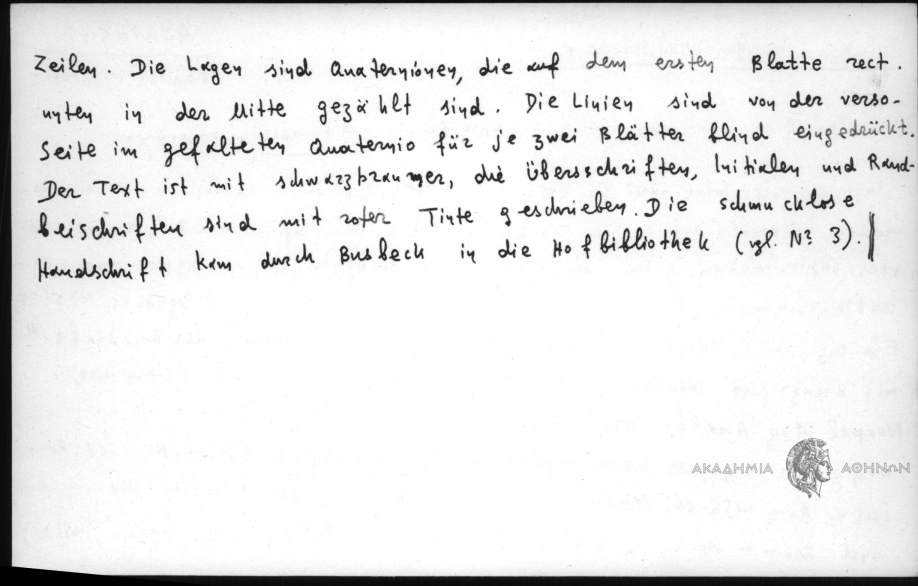 Zeilen. Die Lagen sind Quaternionen, die auf dem ersten Blatte rect.
unten in der Mitte gezählt sind. Die Linien sind von der verso-
Seite im gefalteten Quaternio für je zwei Blätter blind eingedrückt.
Der Text ist mit schwarzbrauner, die Überschriften, Initialen und Rand-
beischriften sind mit roter Tinte geschrieben. Die schmucklose
Handschrift kam durch Busbeck in die Hofbibliothek (vgl. Nº 3).
ΑΚΑΔΗΜΙΑ ΑΘΗΝΩΝ